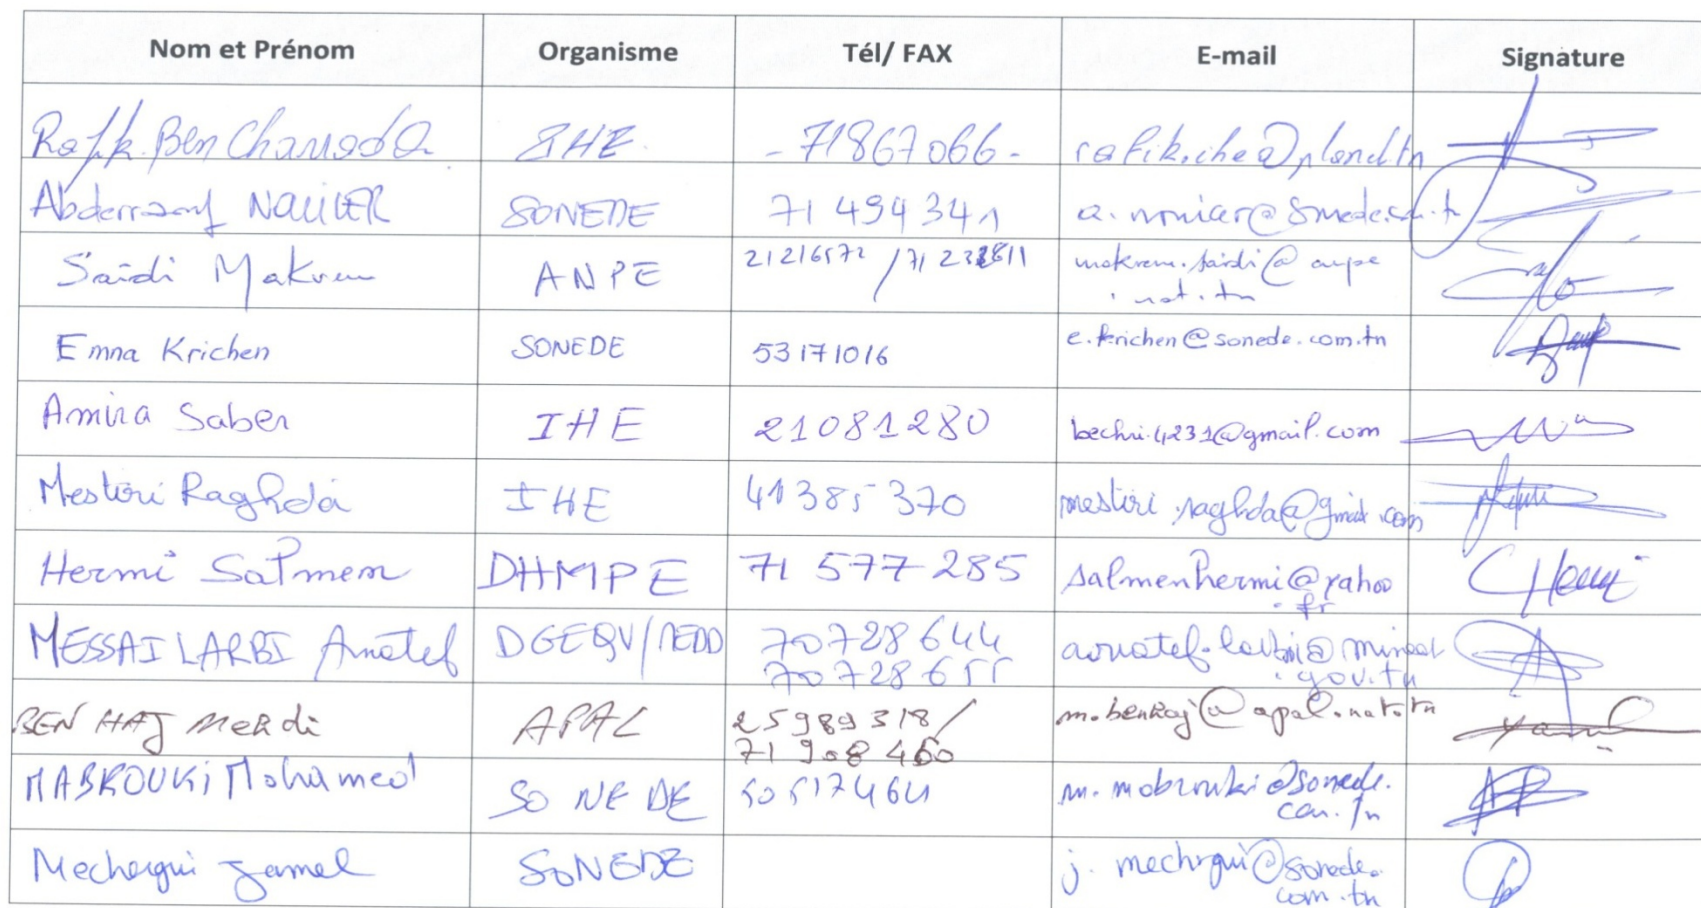 Nom et Prénom Organisme Tél/ FAX E-mail Signature
Rafik Ben Chaouacha IHE - 71867066 -
Abderraouf NOUICER SONEDE 71 494 341
Saidi Makrem ANPE 21216572 / makrem.saidi@anpe
.nat.tn
Emna Krichen SONEDE 53171016 e.krichen@sonede.com.tn
Amira Saber IHE 21081280 bechri.4231@gmail.com
Mestiri Raghda IHE 41385370 mestiri.raghda@gmail.com
Hermi Salmem DHMPE 71 577 285 salmenhermi@yahoo
.fr
MESSAI LARBI Awatef 70728644
70728655 .gov.tn
BEN HAJ Mehdi APAL 25989318/ m.benhaj@apal.nat.tn
71 908 460
MABROUKi Mohamed SONEDE 50517464 m.mabrouki@sonede.
com.tn
Mechergui Jamel SONEDE j.mechrgui@sonede.
com.tn